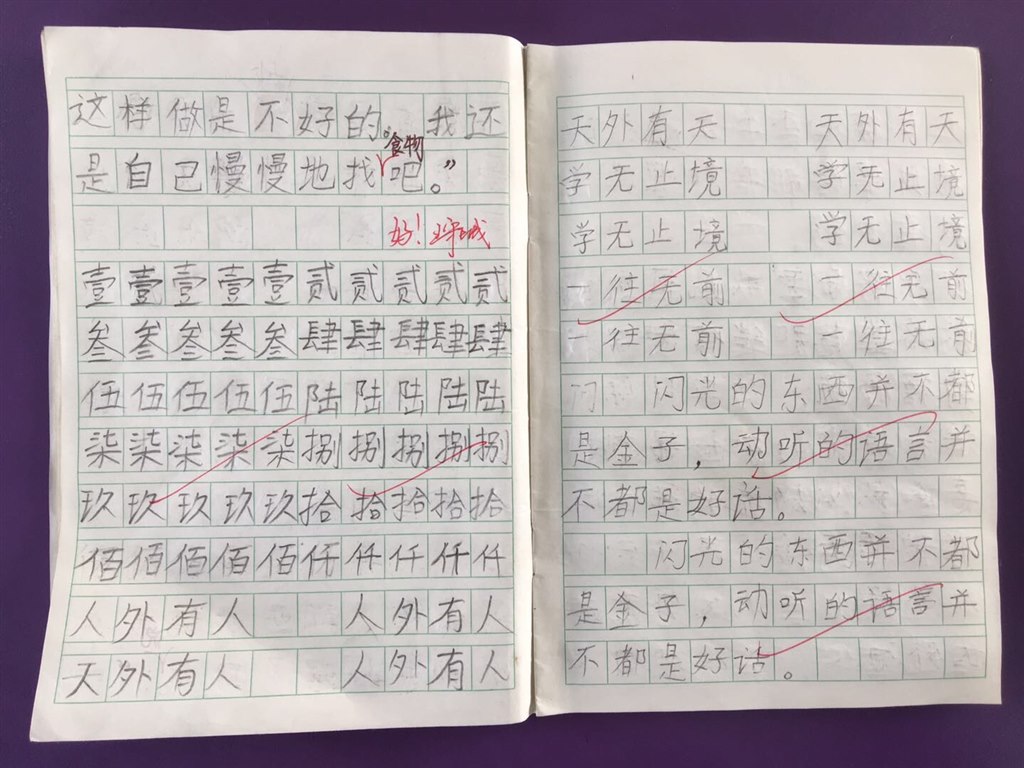 这样做是不好的。我还
食物
是自己慢慢地找吧。”
好!
壹壹壹壹壹贰贰贰贰贰
叁叁叁叁叁肆肆肆肆肆
伍伍伍伍伍陆陆陆陆陆
柒柒柒柒柒捌捌捌捌捌
玖玖玖玖玖拾拾拾拾拾
佰佰佰佰佰仟仟仟仟仟
人外有人 人外有人
天外有人 人外有人
天外有天 天外有天
学无止境 学无止境
学无止境 学无止境
一往无前 一往无前
一往无前 一往无前
闪光的东西并不都
是金子，动听的语言并
不都是好话。
闪光的东西并不都
是金子，动听的语言并
不都是好话。